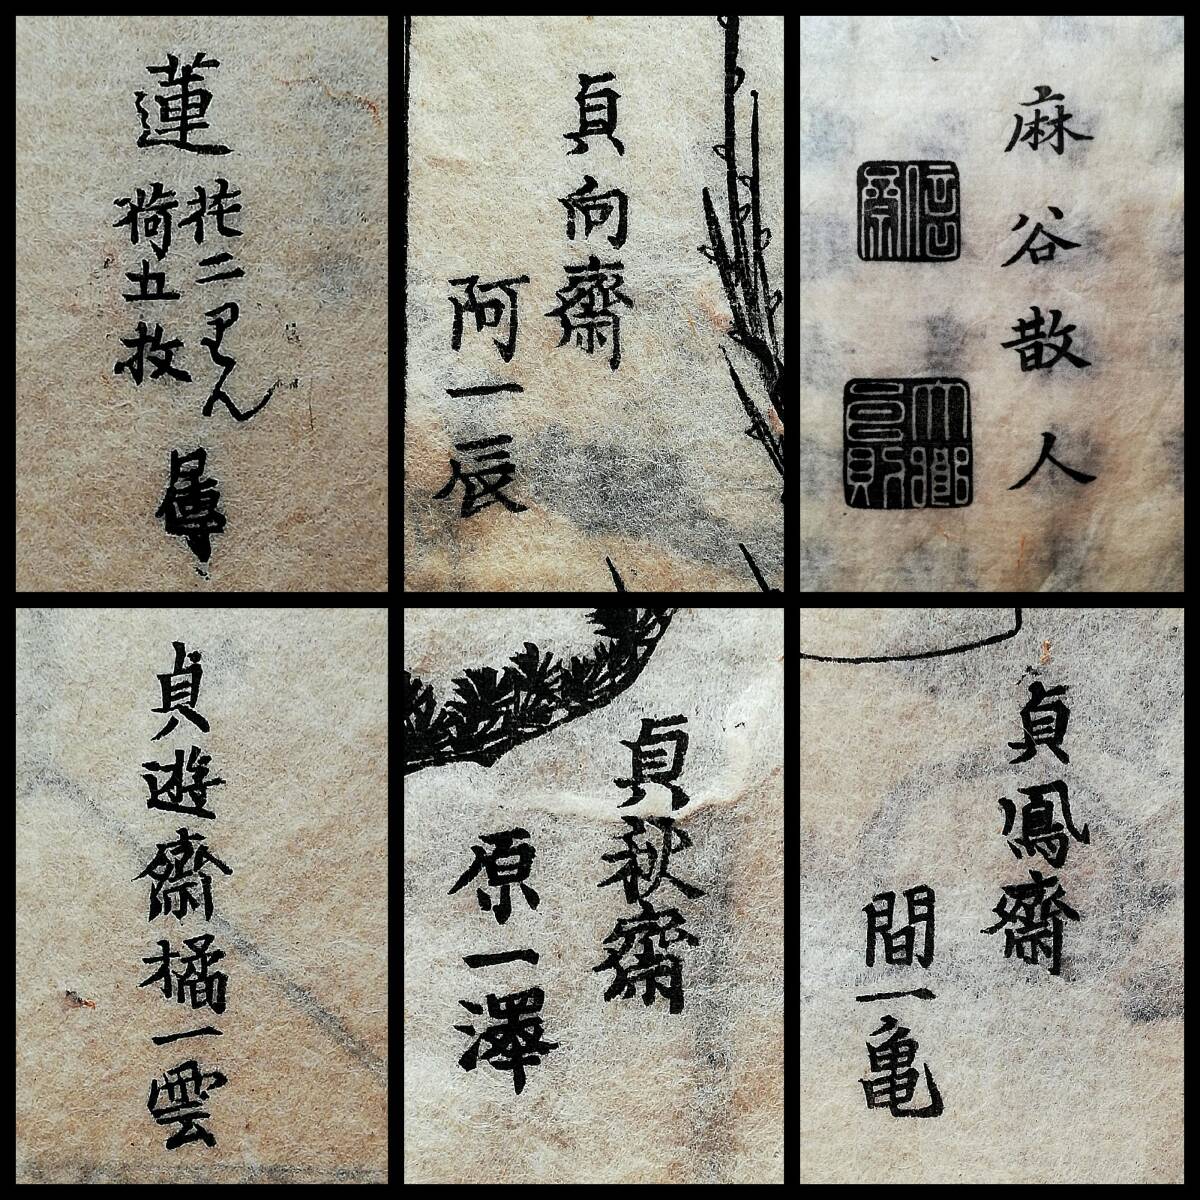 蓮
花二りん
荷五枚
貞向齋
阿一辰
麻谷散人
信齋
貞遊齋橘一雲
貞秋齋
原一澤
貞鳳齋
間一亀